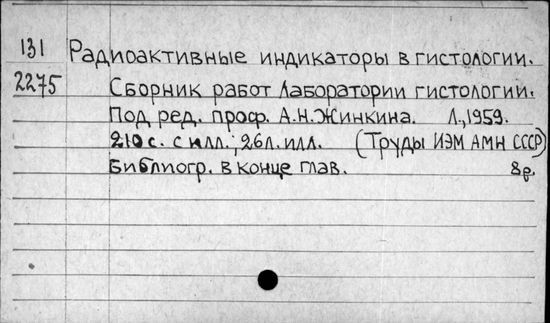 131 Радиоактивные индикаторы в гистологии.
2275 Сборник работ Лаборатории гистологии.
Под ред. проф. А.Н.Жинкина. Л.,1959.
210 с. с илл., 26л. илл. (Труды ИЭМ АМН СССР)
Библиогр. в конце глав. 8р.